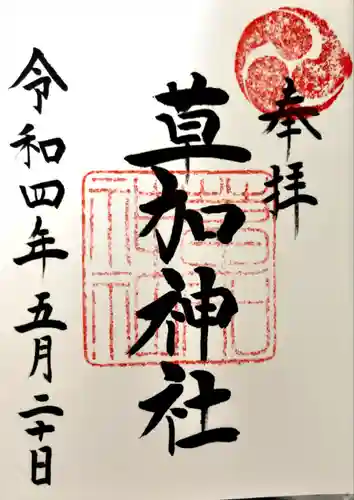 奉拝
草加神社
令和四年五月二十日